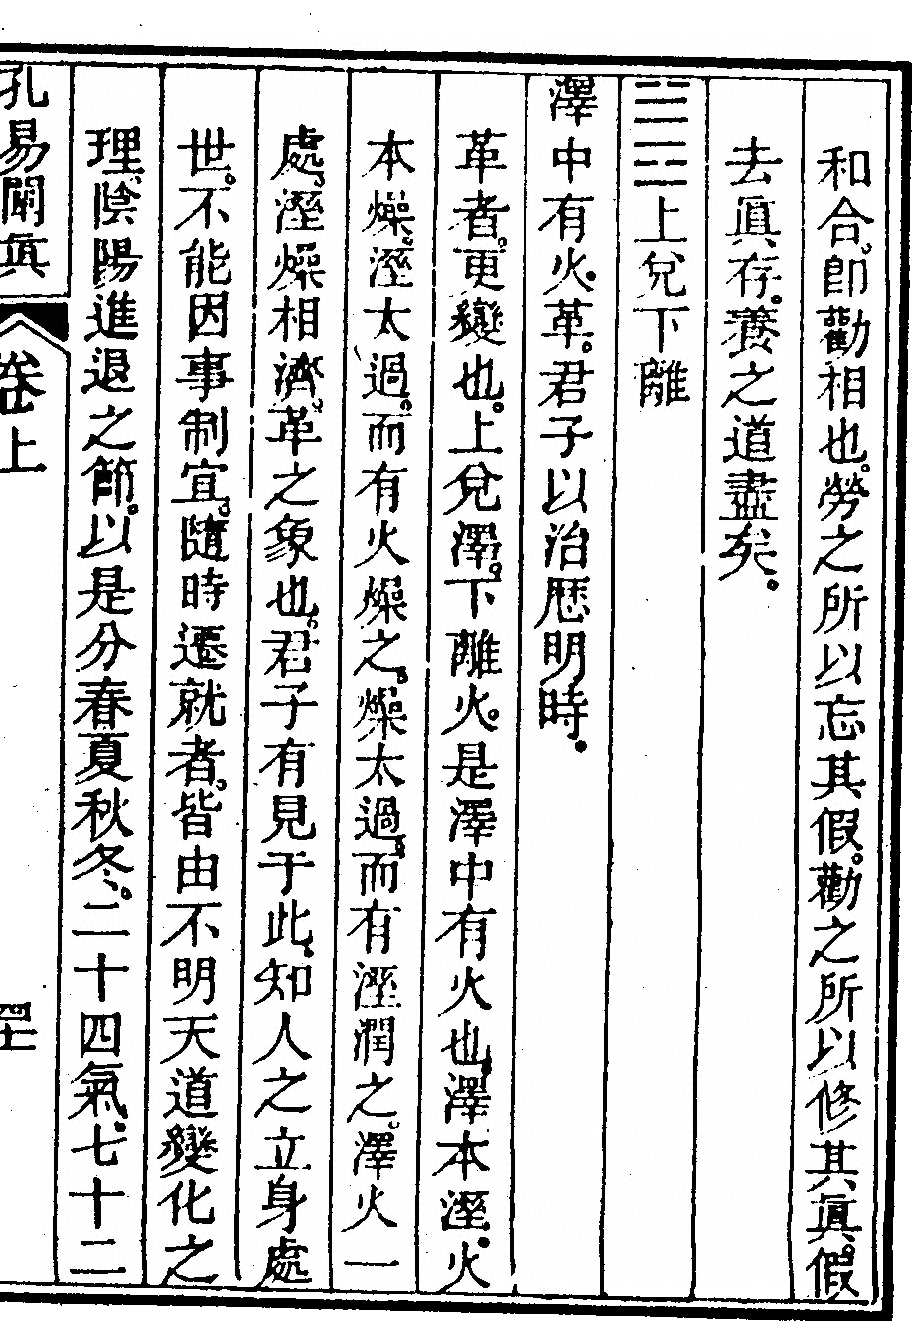 和合。卽勸相也。勞之所以忘其假。勸之所以修其眞。假
去眞存。養之道盡矣。
䷰上兌下離
澤中有火。革。君子以治厯明時。
革者。更變也。上兌澤。下離火。是澤中有火也。澤本溼。火
本燥。溼太過。而有火燥之。燥太過。而有溼潤之。澤火一
處。溼燥相濟。革之象也。君子有見于此。知人之立身處
世。不能因事制宜。隨時遷就者。皆由不明天道變化之
理。陰陽進退之節。以是分春夏秋冬。二十四氣。七十二
孔易闡眞
卷上